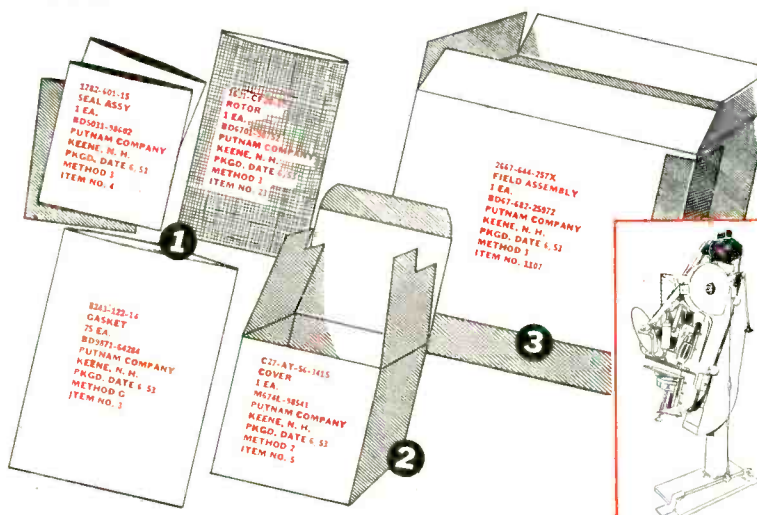 1782-601-15
SEAL ASSY
1 EA.
BD5033-98602
PUTNAM COMPANY
KEENE, N. H.
PKGD. DATE 6, 53
METHOD 3
ITEM NO. 4
ROTOR
1 EA.
PUTNAM COMPANY
KEENE, N. H.
PKGD. DATE 6, 53
METHOD 3
ITEM NO.
1
8343-122-16
GASKET
75 EA.
BD9873-64284
PUTNAM COMPANY
KEENE, N. H.
PKGD. DATE 6 53
METHOD G
ITEM NO. 3
C27-AT-56-3415
COVER
1 EA.
M674L-98541
PUTNAM COMPANY
KEENE, N. H.
PKGD. DATE 6, 53
METHOD 2
ITEM NO. 5
2
2667-644-257X
FIELD ASSEMBLY
1 EA.
BD67-682-25972
PUTNAM COMPANY
KEENE, N. H.
PKGD. DATE 6, 53
METHOD 3
ITEM NO. 1107
3